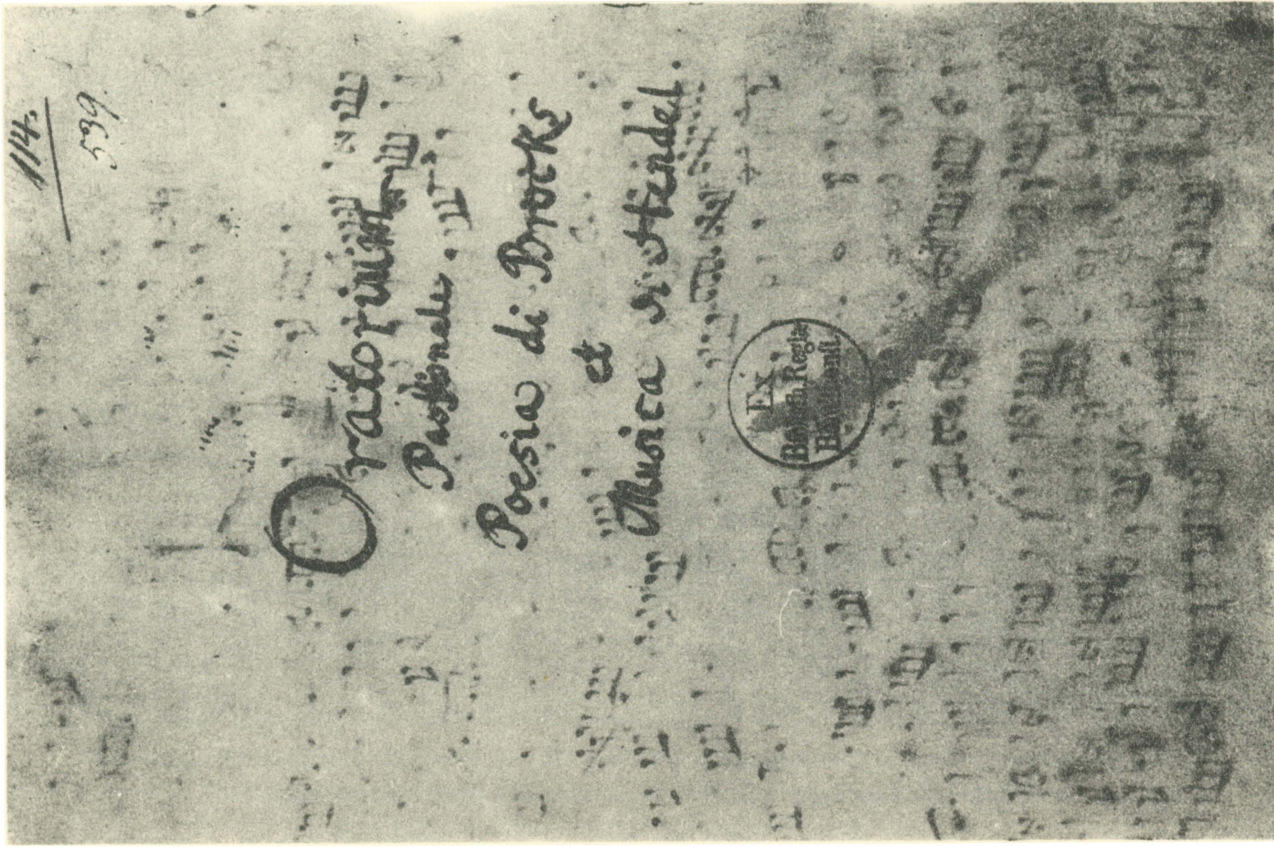 114.
539.
Oratorium
Passionale.
Poesia di Brocks
et
Musica di Hendel.
Ex
Biblioth. Regia
Berolinensi.